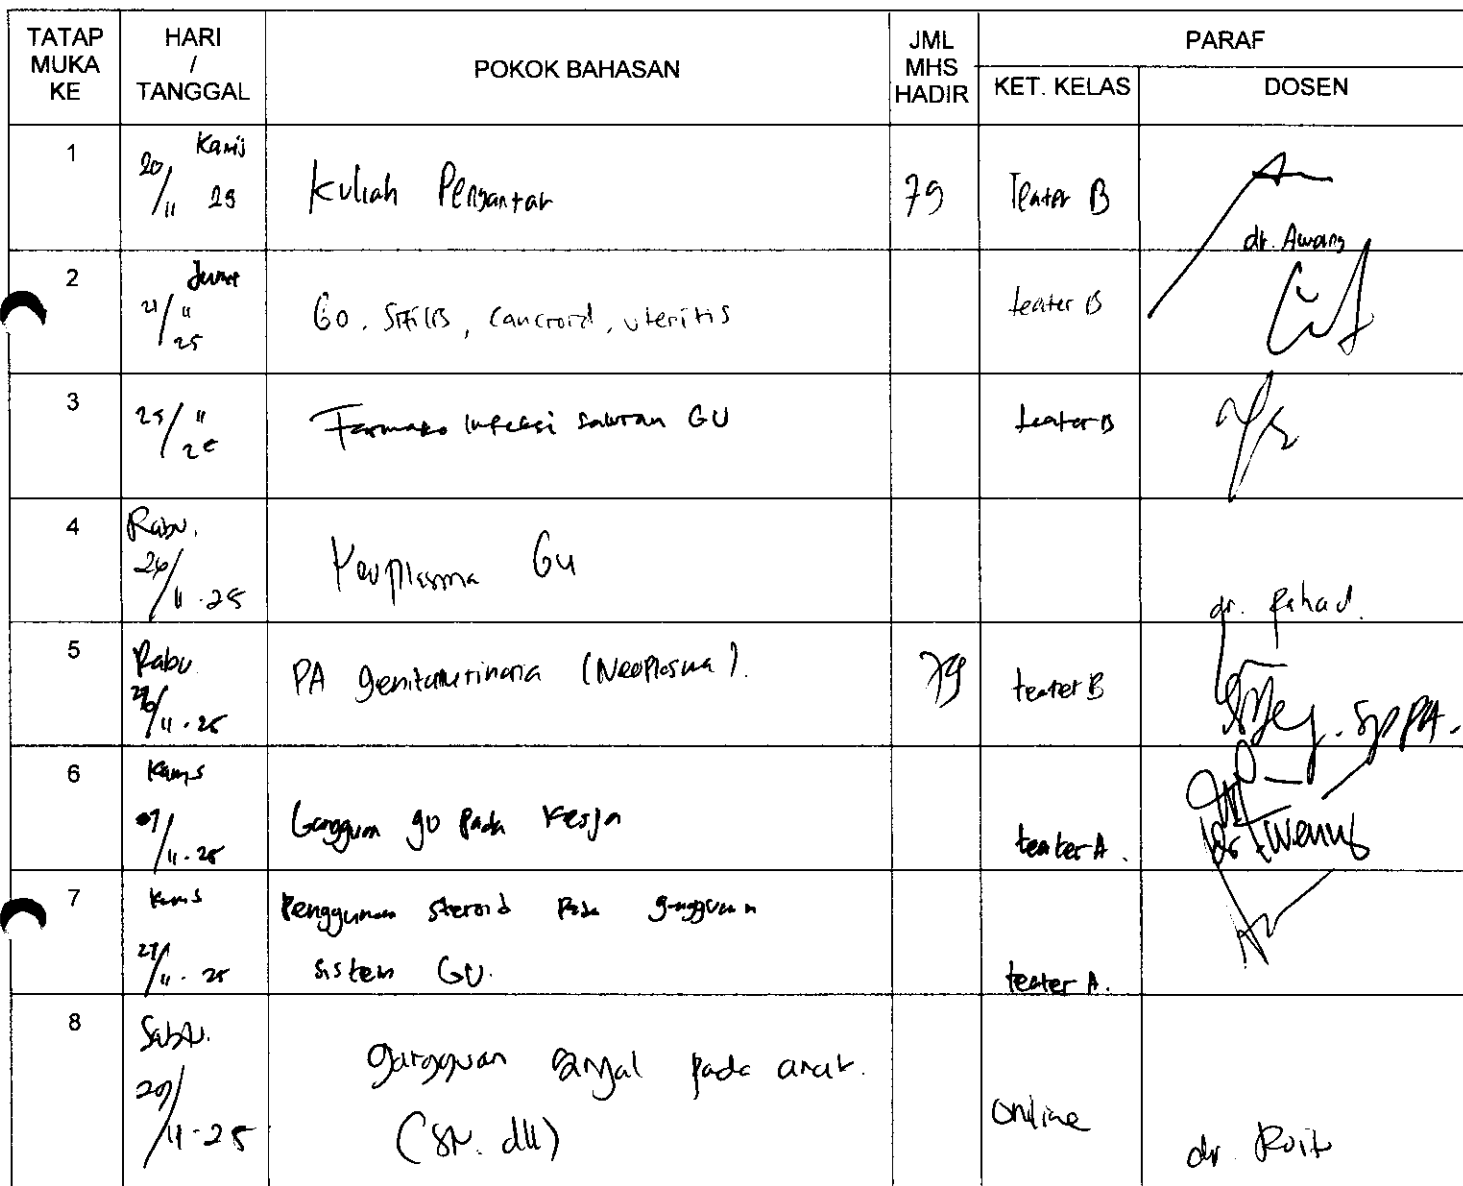 TATAP MUKA KE HARI / TANGGAL POKOK BAHASAN JML MHS HADIR PARAF
KET. KELAS DOSEN
1 Kamis 20/11 25 Kuliah Pengantar 79 Teater B dr. Awang
2 Jumat 21/11 25 GO, Sifilis, Cancroid, uteritis teater B
3 25/11 25 Farmako Infeksi Saluran GU teater B
4 Rabu. 26/11-25 Neoplasma GU dr. Fahad.
5 Rabu 26/11-25 PA genitourinaria (Neoplasma). 79 teater B SpPA.
6 Kamis 27/11-25 Gangguan GU pada Kerja teater A.
7 Kamis 27/11-25 Penggunaan steroid pada gangguan
sistem GU. teater A.
8 Sabtu. 29/11-25 gangguan ginjal pada anak.
(SN. dll) Online dr.